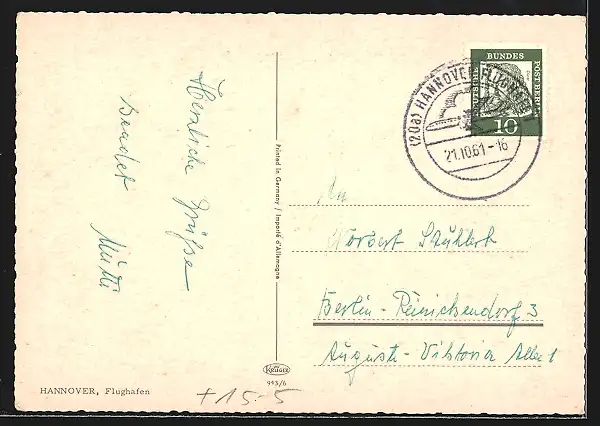 Herzliche Grüße
sendet
Mutti
Printed in Germany / Importé d'Allemagne
Krüger
943/6
HANNOVER, Flughafen
+ 15.-5
DEUTSCHE BUNDESPOST BERLIN
10
(20a) HANNOVER FLUGHAFEN
21.10.61-16
An
Norbert
Berlin - Reinickendorf 3
Auguste-Viktoria Allee 1